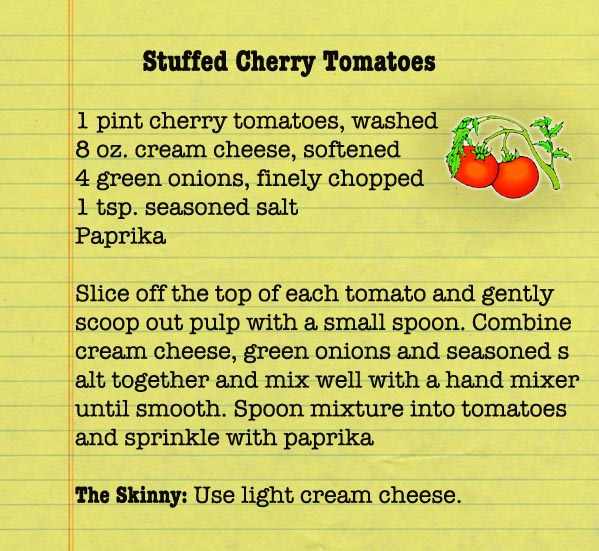 Stuffed Cherry Tomatoes
1 pint cherry tomatoes, washed
8 oz. cream cheese, softened
4 green onions, finely chopped
1 tsp. seasoned salt
Paprika
Slice off the top of each tomato and gently
scoop out pulp with a small spoon. Combine
cream cheese, green onions and seasoned s
alt together and mix well with a hand mixer
until smooth. Spoon mixture into tomatoes
and sprinkle with paprika
The Skinny: Use light cream cheese.